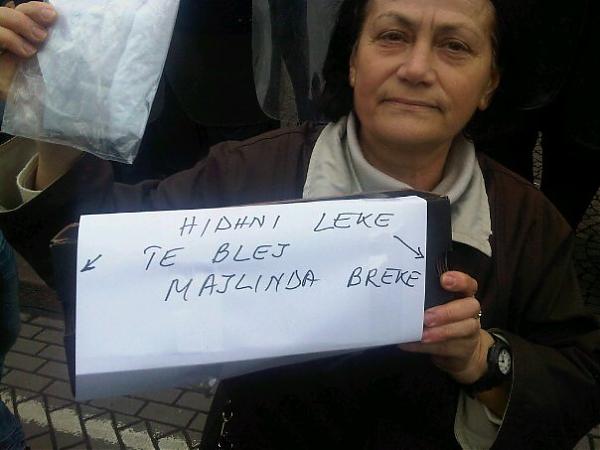 HIDHNI LEKE
TE BLEJ
MAJLINDA BREKE